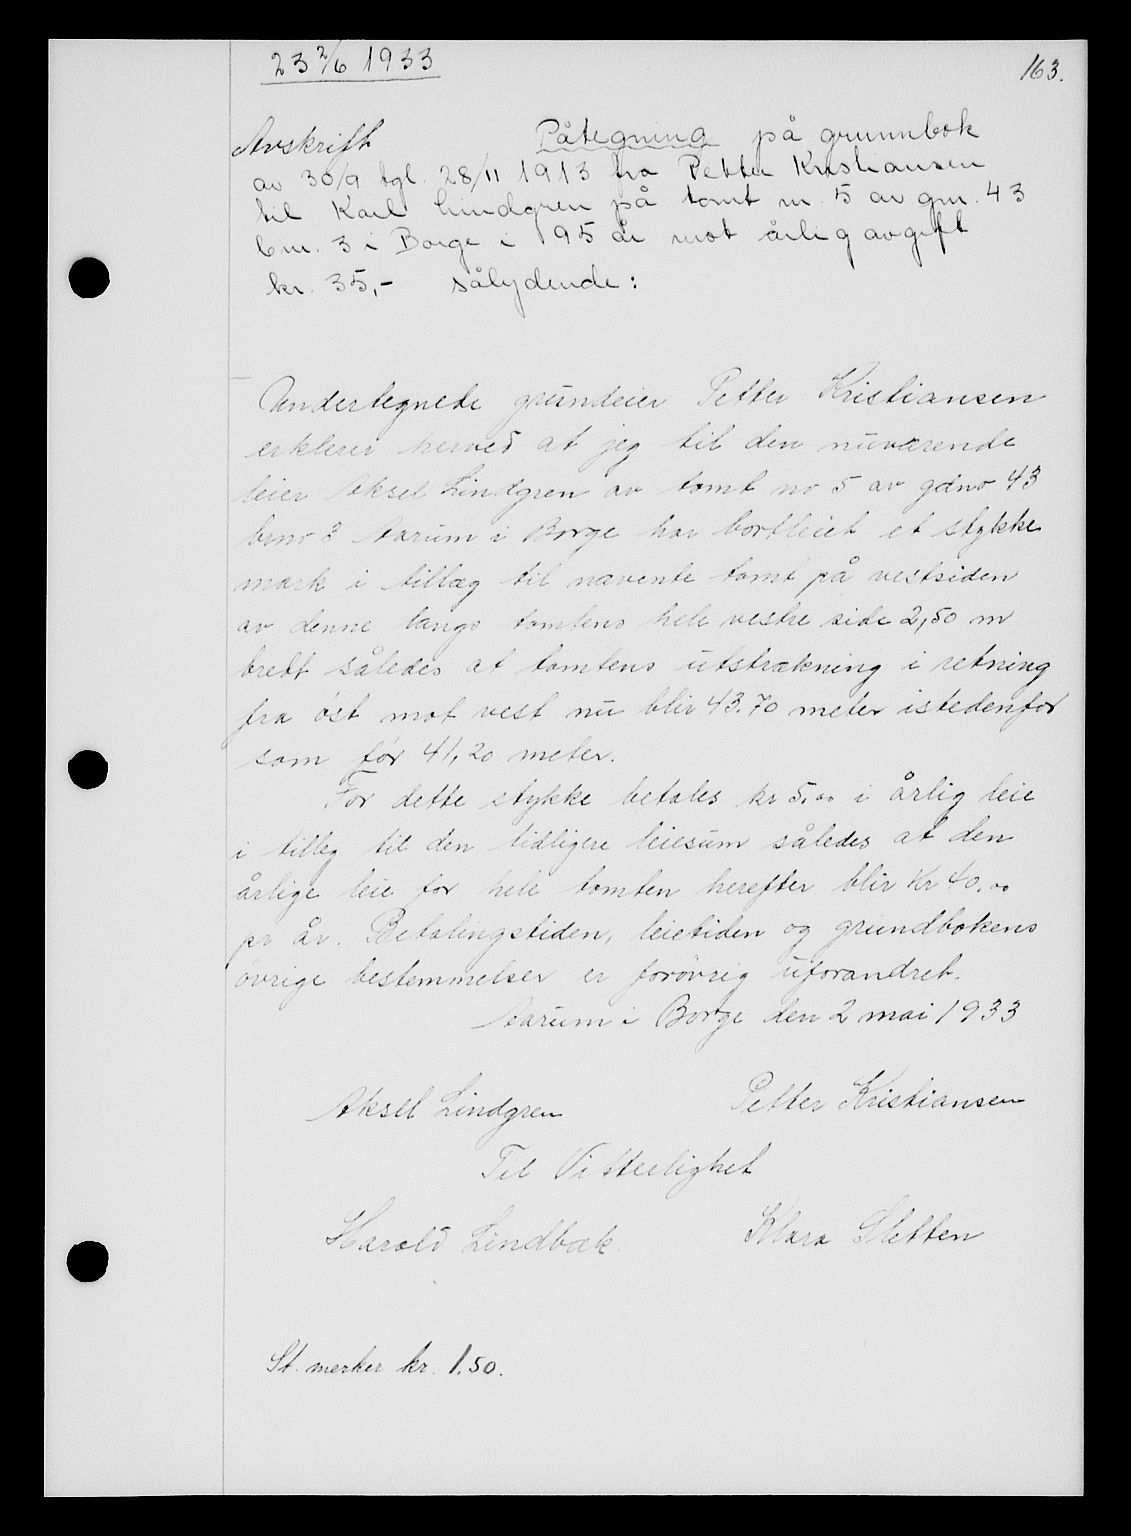 23 2/6 1933
163.
Avskrift Påtegning på grunnbok
av 30/9 tgl. 28/11 1913 fra Petter Kristiansen
til Karl Lindgren på tomt nr. 5 av gnr. 43
bnr. 3 i Borge i 95 år mot årlig avgift
kr. 35,- sålydende:
Undertegnete grundeier Petter Kristiansen
erklerer herved at jeg til den nuværende
leier Aksel Lindgren av tomt no 5 av gdno 43
bno 3 Aarum i Borge har bortleiet et stykke
mark i tillæg til nævnte tomt på vestsiden
av denne langs tomtens hele vestre side 2,50 m
bredt således at tomtens utstrækning i retning
fra øst mot vest nu blir 43.70 meter istedenfor
som før 41,20 meter.
For dette stykke betales kr 5.00 i årlig leie
i tilleg til den tidligere leiesum således at den
årlige leie for hele tomten herefter blir Kr 40.00
pr år. Betalingstiden, leietiden og grundbokens
øvrige bestemmelser er forøvrig uforandret.
Aarum i Borge den 2 mai 1933
Aksel Lindgren Petter Kristiansen
Til Vitterlighet
Harald Lindbæk Klara Sletten
St. merker kr. 1.50.